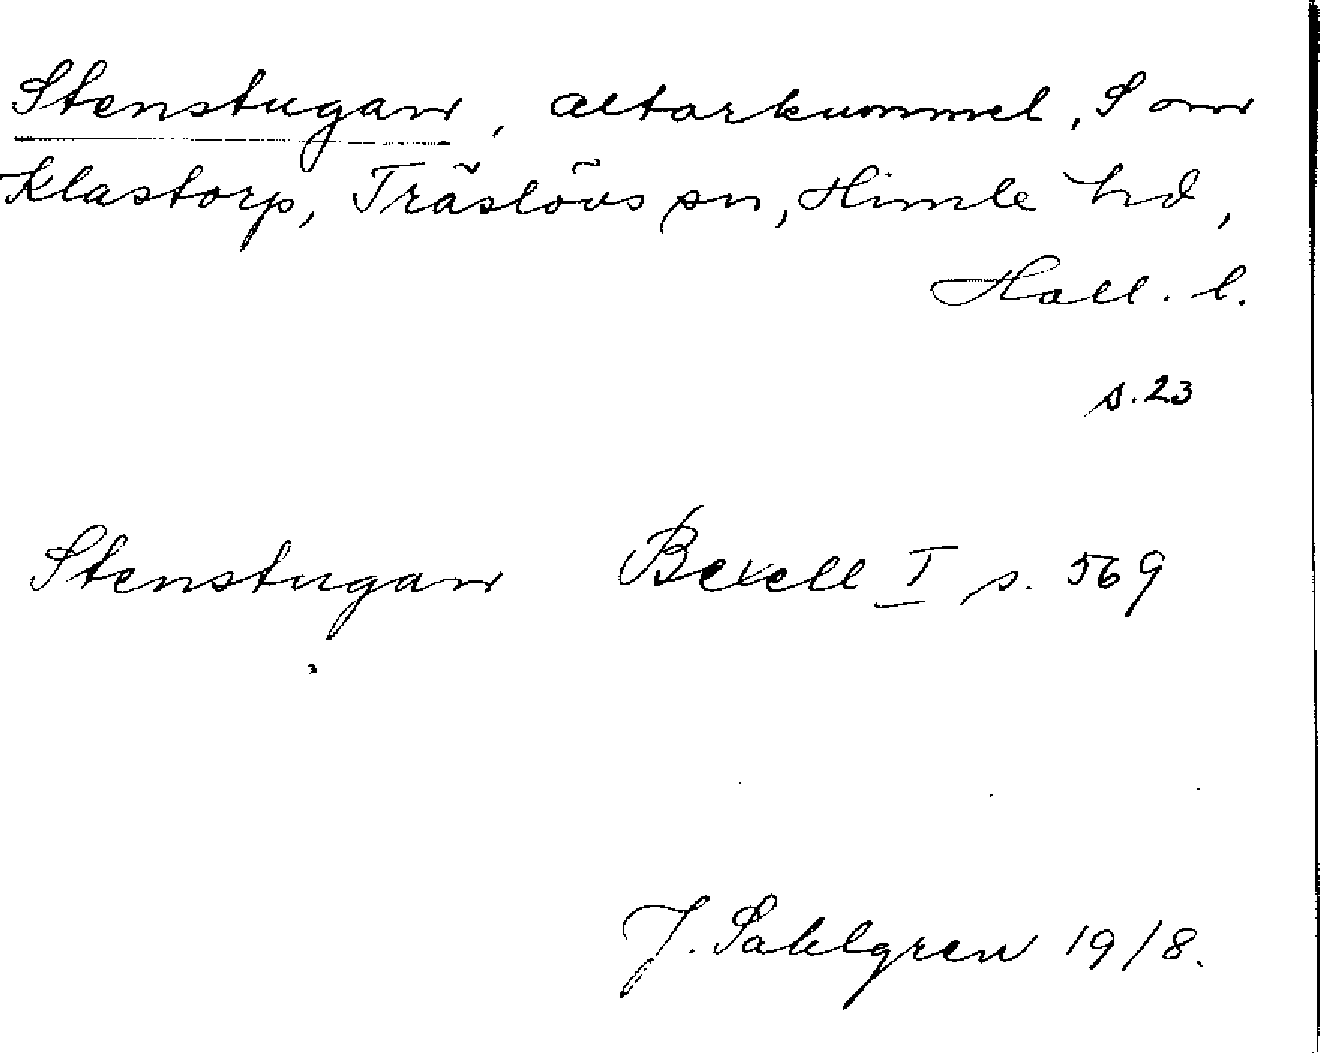 Stenstugan, altarkummel, S om
Klastorp, Träslövs sn, Himle hd,
Hall. l.
s. 23
Stenstugan Bexell I s. 569
J. Sahlgren 1918.